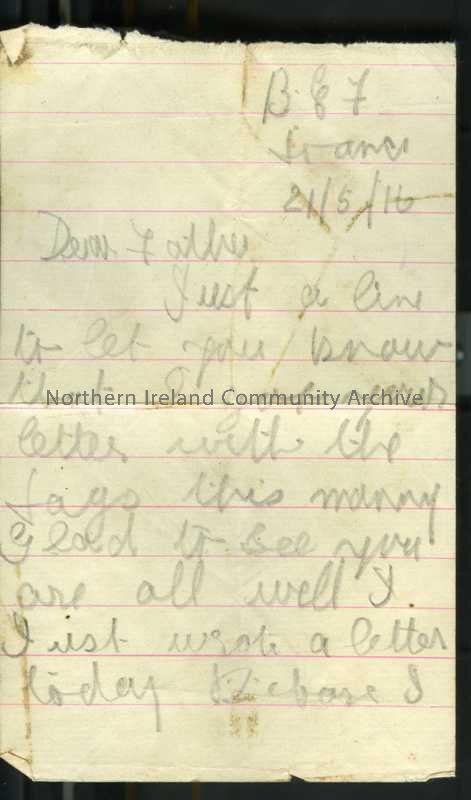 B E F
France
21/5/16
Dear Father
Just a line
to let you know
that I your
Northern Ireland Community Archive
letter with the
fags this morny
Glad to see you
are all well I
Just wrote a letter
today before I